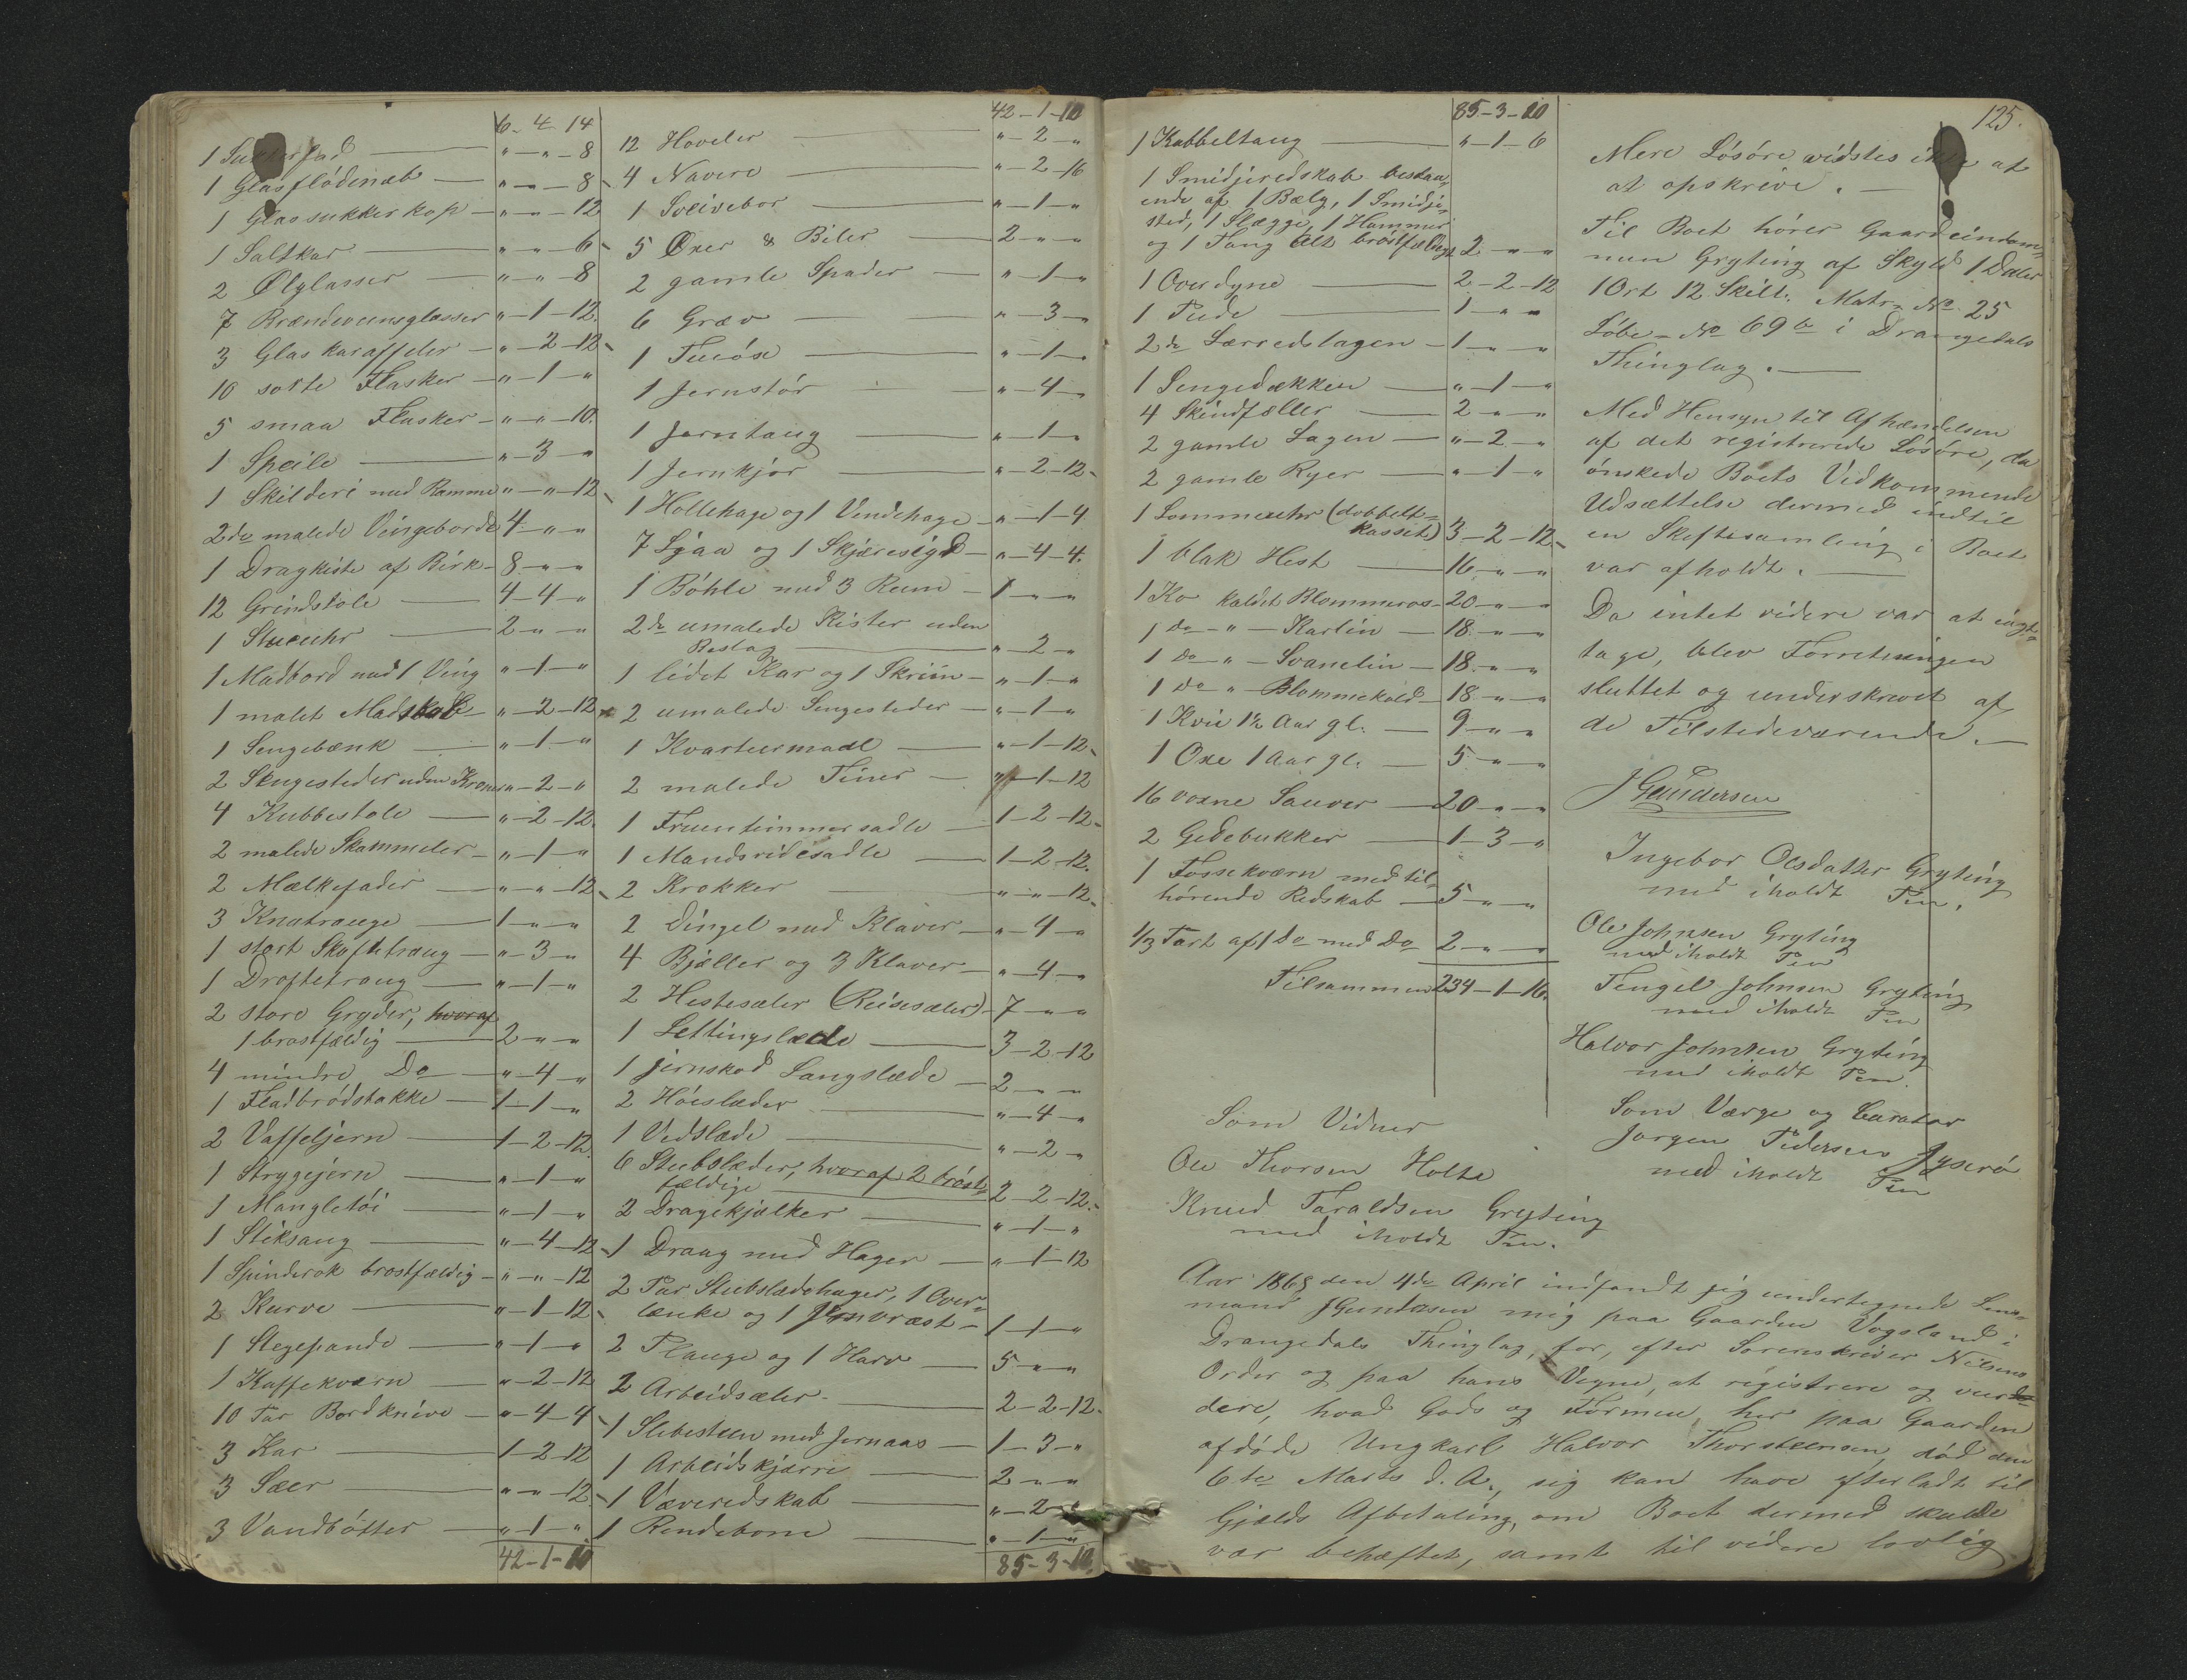 6 - 4 - 14
1 Sukkerfad — " - " - 8
1 Glasflödenæb — " - " - 8
1 Glassukkerkop — " - " - 12
1 Saltkar — " - " - 6
2 Ølglasser — " - " - 8
7 Brændeviinsglasser — " - 1 - 12
3 Glaskaraffeler — " - 2 - 12
10 sorte Flasker — " - 1 - "
5 smaa Flasker — " - " - 10.
1 Speile — " - 3 - "
1 Skilderi med Ramme " - " - 12
2 do malede Vingeborde 4 - " - "
1 Dragkiste af Birk — 8 - " - "
12 Grindstole — 4 - 4 - "
1 Stueuhr — 2 - " - "
1 Madbord med 1 Ving " - 1 - "
1 malet Madskab — " - 2 - 12
1 Sengebænk — " - 1 - "
2 Sengesteder uden Krone " - 2 - "
4 Kubbestole — " - 2 - 12.
2 malede Skammeler — " - 1 - "
2 Mælkefader — " - " - 12
3 Knatrauge — 1 - " - "
1 stort Skuftetraug — " - 3 - "
1 Droftetraug — " - 1 - "
2 store Gryder, hvoraf
1 brøstfældig — 2 - " - "
4 mindre Do — " - 4 - "
1 Fladbrödstakke — 1 - 1 - "
2 Vaffeljern — 1 - 2 - 12.
1 Strygejern — " - 1 - "
1 Mangletöi — " - 1 - "
1 Stiksaug — " - 4 - 12
1 Spinderok brøstfældig — " - " - 12
2 Kurve — " - 1 - 12
1 Stegepande — " - 1 - "
1 Kaffekværn — " - 2 - 12
10 Par Bordknive — " - 4 - 4
3 Kar — 1 - 2 - 12
3 Sæer — " - " - 12
3 Vandbötter — " - 1 - "
42 - 1 - 10
42 - 1 - 10
12 Hoveler — " - 2 - "
4 Navere — " - 2 - 16
1 Sveivebor — " - 1 - "
5 Øxer & Biler — 2 - " - "
2 gamle Spader — " - 1 - "
6 Græv — " - 3 - "
1 Tueöxe — " - 1 - "
1 Jernstör — " - 4 - "
1 Jerntaug — " - 1 - "
1 Jernkjør — " - 2 - 12
1 Hollehage og 1 Vendehage — " - 1 - 4
7 Ljaa og 1 Skjæresigd — " - 4 - 4.
1 Böhle med 3 Rum — 1 - " - "
2 do umalede Kister uden
Beslag — " - 2 - "
1 lidet Kar og 1 Skriin — " - 1 - "
2 umalede Sengesteder — " - 1 - "
1 Kvarteermaal — " - 1 - 12
2 malede Tiner — " - 1 - 12
1 Fruentimmersadle — 1 - 2 - 12
1 Mandsridesadle — 1 - 2 - 12.
2 Krokker — " - " - 12
2 Dingel med Klaver — " - 4 - "
4 Bjæller og 3 Klaver — " - 4 - "
2 Hestesæler (Reisesæler) — 7 - " - "
1 Lettingslæde — 3 - 2 - 12
1 jernskod Langslæde — 2 - " - "
2 Höislæder — " - 4 - "
1 Vedslæde — " - 2 - "
6 Stubslæder, hvoraf 2 bröst-
fældige — 2 - 2 - 12.
2 Dragekjælker — " - 1 - "
1 Draug med Hager — " - 1 - 12
2 Par Stubslædehager, 1 Over-
lænke og 1 Jernvræst — 1 - 1 - "
2 Plauge og 1 Harv — 5 - " - "
2 Arbeidsæler — 2 - 2 - 12
1 Slibesteen med Jernaas — 1 - 3 - "
1 Arbeidskjærre — 2 - " - "
1 Væveredskab — " - 2 - "
1 Rendebom — " - 1 - "
85 - 3 - 10.
85 - 3 - 10
1 Kabbeltaug — " - 1 - 6
1 Smidjeredskab bestaa-
ende af 1 Bælg, 1 Smidje-
sted, 1 Slægge, 1 Hammer
og 1 Tang alt bröstfældigt 2 - " - "
1 Overdyne — 2 - 2 - 12
1 Pude — 1 - " - "
2 do Lærredslagen — 1 - " - "
1 Sengedækken — " - 1 - "
4 Skindfæller — 2 - " - "
2 gamle Lagen — " - 2 - "
2 gamle Ryer — " - 1 - "
1 Lommeuhr (dobbelt-
kasset) 3 - 2 - 12
1 blak Hest — 16 - " - "
1 Ko kaldet Blommeros — 20 - " - "
1 do - " - Karlin — 18 - " - "
1 do - " - Svanelin — 18 - " - "
1 do - " - Blommekold — 18 - " - "
1 Kvie 1½ Aar gl. — 9 - " - "
1 Oxe 1 Aar gl. — 5 - " - "
16 voxne Sauer — 20 - " - "
2 Gedebukker — 1 - 3 - "
1 Fossekværn med til-
hørende Redskab — 5 - " - "
1/3 Part af 1 do med do 2 - " - "
Tilsammen 234 - 1 - 16.
Som Vidner
Ole Thorsen Holte
Knud Taraldsen Gryting
med iholdt Pen.
125.
Mere Lösöre vidstes ikke at
at opskrive. —
Til Boet hörer Gaardeiendom-
men Gryting af Skyld 1 Daler
1 Ort 12 Skill. Matr. No 25
Löbe - No 69 b i Drangedals
Thinglag. —
Med Hensyn til Afhændelsen
af det registrerede Lösöre, da
önskede Boets Vedkommende
Udsættelse dermed indtil
en Skiftesamling i Boet
var afholdt. —
Da intet videre var at iagt-
tage, blev Forretningen
sluttet og underskrevet af
de Tilstedeværende. —
J Gundersen
Ingebor Olsdatter Gryting
med iholdt Pen.
Ole Johnsen Gryting
med iholdt Pen
Tengel Johnsen Gryting
med iholdt Pen
Halvor Johnsen Gryting
med iholdt Pen.
Som Værge og Curator
Jørgen Pedersen
med iholdt Pen
Aar 1868 den 4de April indfandt jeg undertegnede Lens-
mand J Gundersen mig paa Gaarden Vogsland i
Drangedals Thinglag, for, efter Sorenskriver Nilsens
Order og paa hans Vegne, at registrere og vur-
dere, hvad Gods og Formue, her paa Gaarden
afdöde Ungkarl Halvor Thorsteensen, död den
6te Marts d. A., sig kan have efterladt til
Gjælds Afbetaling, om Boet dermed skulde
var behæftet, samt til videre lovlig